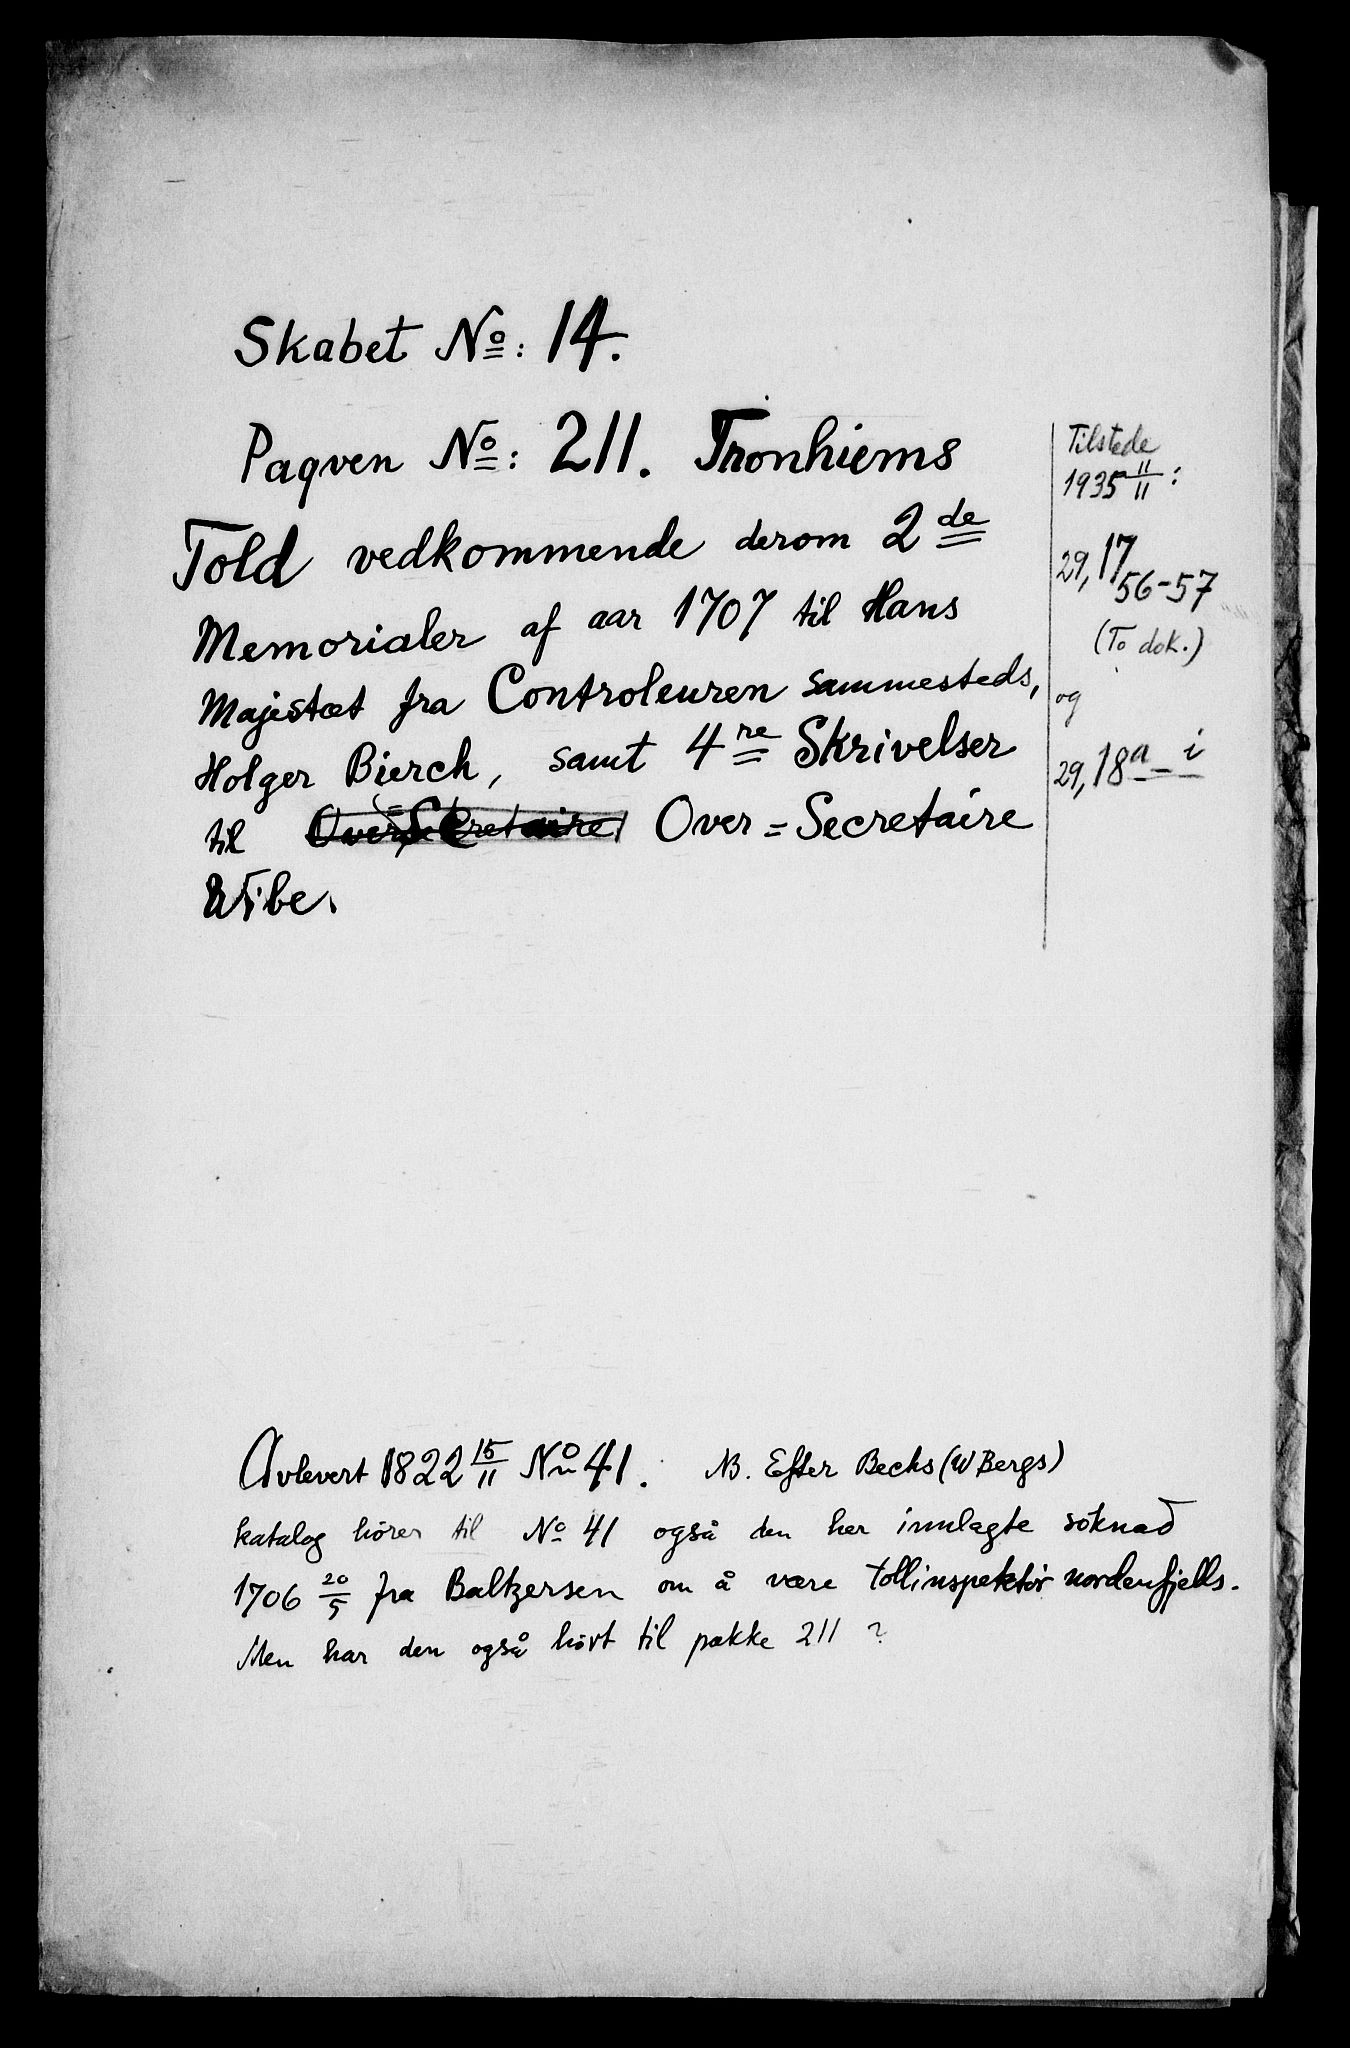 Skabet No: 14.
Paqven No: 211. Tronhiems
Told vedkommende derom 2de
Memorialer af aar 1707 til Hans
Majestæt fra Controleuren sammesteds,
Holger Bierch, samt 4re Skrivelser
til Over=Secretaire Over=Secretaire
Wibe.
Tilstede
1935 11/11:
29,17 56-57
(To dok.)
og
29,18a-i
Avlevert 1822 15/11 No 41. NB. Efter Bechs (W Bergs)
katalog hører til No 41 også den her innlagte søknad
1706 20/5 fra Baltzersen om å være tollinspektør nordenfjells.
Men har den også hørt til pakke 211 ?